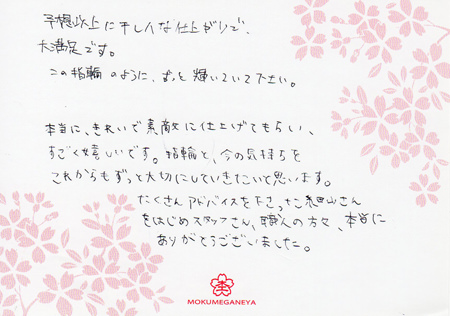 予想以上にキレイな仕上がりで、
大満足です。
この指輪のように、ずっと輝いていて下さい。
本当に、きれいで素敵に仕上げてもらい、
すごく嬉しいです。指輪と、今の気持ちを
これからもずっと大切にしていきたいと思います。
たくさんアドバイスを下さった 山さん
をはじめスタッフさん、職人の方々、本当に
ありがとうございました。
MOKUMEGANEYA